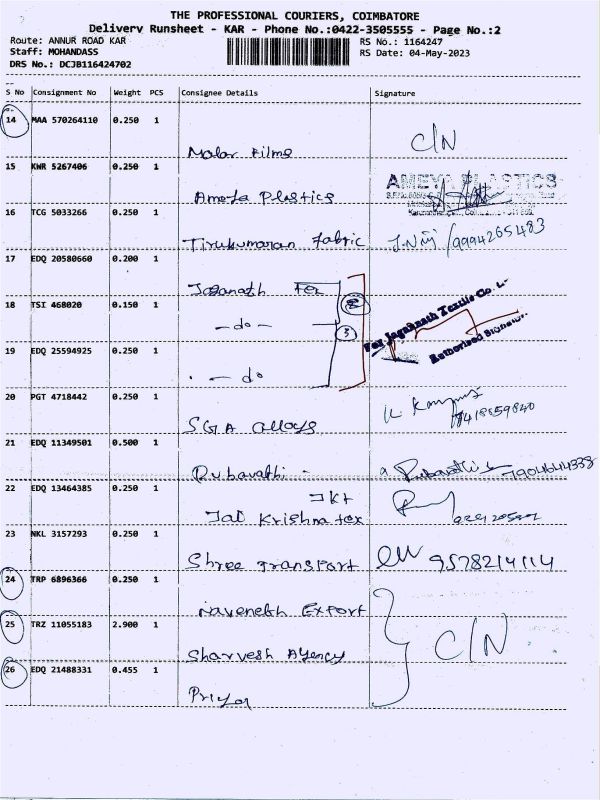 THE PROFESSIONAL COURIERS, COIMBATORE
Delivery Runsheet - KAR - Phone No.:0422-3505555 - Page No.:2
Route: ANNUR ROAD KAR
RS No.: 1164247
Staff: MOHANDASS
RS Date: 04-May-2023
DRS No.: DCJB116424702
S No Consignment No Weight PCS Consignee Details Signature
14 MAA 570264110 0.250 1
Malar Films C/N
15 KWR 5267406 0.250 1
Ameya Plastics AMEYA PLASTICS
16 TCG 5033266 0.250 1
Tirukumaran fabric /9994265483
17 EDQ 20580660 0.200 1
Jaganath Tex
18 TSI 468020 0.150 1
- do - 3
For Jagannath Textile Co.
Authorised Signatory
19 EDQ 25594925 0.250 1
- do
20 PGT 4718442 0.250 1
SGA alloys
21 EDQ 11349501 0.500 1
Rubavathi -
22 EDQ 13464385 0.250 1
JKT
Jai Krishna tex
23 NKL 3157293 0.250 1
Shree Transport 9578214114
24 TRP 6896366 0.250 1
Navaneeth Export
25 TRZ 11055183 2.900 1
Sharvesh Agency C/N
26 EDQ 21488331 0.455 1
Priya